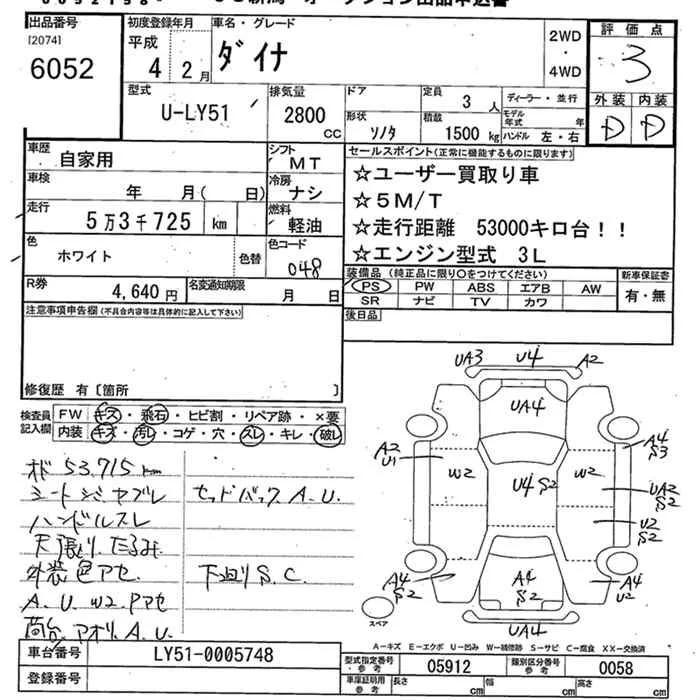 出品番号 初度登録年月 車名・グレード 評価点
[2074] 平成 4 2月 ダイナ 2WD ・ 4WD 3
6052
型式 排気量 ドア 定員 3 人 ディーラー・並行 外装 内装
U-LY51 2800 CC 形状 ソノタ 積載 1500 kg モデル年式 年 D D
ハンドル 左・右
車歴 自家用 シフト MT セールスポイント(正常に機能するものに限ります)
車検 年 月( 日) 冷房 ナシ ☆ユーザー買取り車
☆5M/T
走行 5万3千725 km 燃料 軽油 ☆走行距離 53000キロ台!!
色 ホワイト 色替 色コード 048 ☆エンジン型式 3L
装備品 (純正品に限り○をつけてください) 新車保証書
R券 4,640円 名変通知期限 月 日 PS PW ABS エアB AW 有・無
SR ナビ TV カワ
注意事項申告欄(不具合内容等は具体的に記入して下さい) 後日品
修復歴 有 [箇所 ]
検査員記入欄 FW キズ・飛石・ヒビ割・リペア跡・×要
内装 キズ・汚レ・コゲ・穴・スレ・キレ・破レ
メーター 53,715 km
シートシミヤブレ セットバックA.U.
ハンドルスレ
天張りたるみ
外装色アセ. 下廻りS.C.
A.U.W2.Pアセ
荷台アオリ.A.U.
UA3 U4 A2
UA4
A2 U1 W2 U4 S2 W2 A4 S3
UA2 S2
U2 S2
A4 S2 A4 S2 A4 U2
UA4
スペア
A-キズ E-エクボ U-凹み W-補修跡 S-サビ C-腐食 XX-交換済
車台番号 LY51-0005748 型式指定番号 参考 05912 類別区分番号 参考 0058
登録番号 車庫証明用 参考 長さ cm 幅 cm 高さ cm